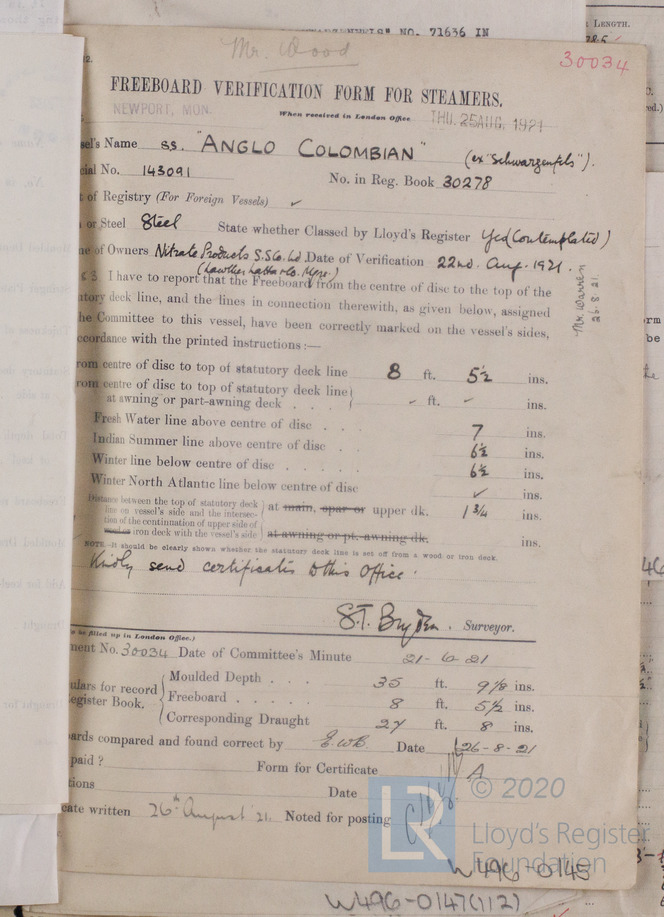 NO. 71636 IN
LENGTH.
Mr. Wood
30034
FREEBOARD VERIFICATION FORM FOR STEAMERS.
NEWPORT, MON.
When received in London Office
THU. 25 AUG. 1921
sel's Name SS. "ANGLO COLOMBIAN" (ex "Schwarzenfels").
cial No. 143091
No. in Reg. Book 30278
t of Registry (For Foreign Vessels) ✓
or Steel Steel State whether Classed by Lloyd's Register Yes (Contemplated)
ne of Owners Nitrate Products S.S.Co. Ld Date of Verification 22nd. Aug. 1921.
(Lowther Latta & Co. Mgrs.)
I have to report that the Freeboard from the centre of disc to the top of the
tory deck line, and the lines in connection therewith, as given below, assigned
he Committee to this vessel, have been correctly marked on the vessel's sides,
ccordance with the printed instructions :—
Mr. Warren
26.8.21.
rom centre of disc to top of statutory deck line 8 ft. 5½ ins.
rom centre of disc to top of statutory deck line
at awning or part-awning deck . . . ✓ ft. ✓ ins.
Fresh Water line above centre of disc . . . 7 ins.
Indian Summer line above centre of disc . . 6½ ins.
Winter line below centre of disc . . . . . 6½ ins.
Winter North Atlantic line below centre of disc ✓ ins.
Distance between the top of statutory deck
line on vessel's side and the intersec-
tion of the continuation of upper side of
wood or iron deck with the vessel's side
at main, spar or upper dk. 1¾ ins.
at awning or pt. awning dk. ins.
NOTE.—It should be clearly shown whether the statutory deck line is set off from a wood or iron deck.
Kindly send certificates to this Office.
Surveyor.
o be filled up in London Office.)
ment No. 30034 Date of Committee's Minute 21-6-21
ulars for record
egister Book.
Moulded Depth . . . 35 ft. 9⅛ ins.
Freeboard . . . . . 8 ft. 5½ ins.
Corresponding Draught 27 ft. 8 ins.
ards compared and found correct by E.W.B. Date 26-8-21
paid ? Form for Certificate A
tions Date
cate written 26th August '21. Noted for posting
© 2020
LR
Lloyd's Register
Foundation
W496-0145
W496-0147(1/2)